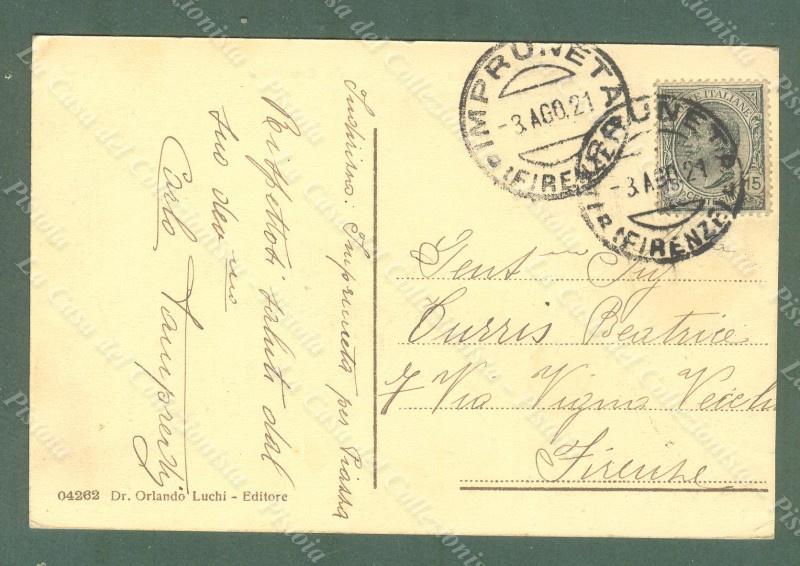 IMPRUNETA
-3.AGO.21
(FIRENZE)
IMPRUNETA
-3.AGO.21
(FIRENZE)
POSTE ITALIANE
15
Indirizzo: Impruneta per Piazza
Rispettosi saluti dal
suo dev mo
Carlo
Gent Sig
Curris Beatrice
7 Via Vigna Vecchia
Firenze
04262 Dr. Orlando Luchi - Editore
La Casa del Collezionista - Pistoia